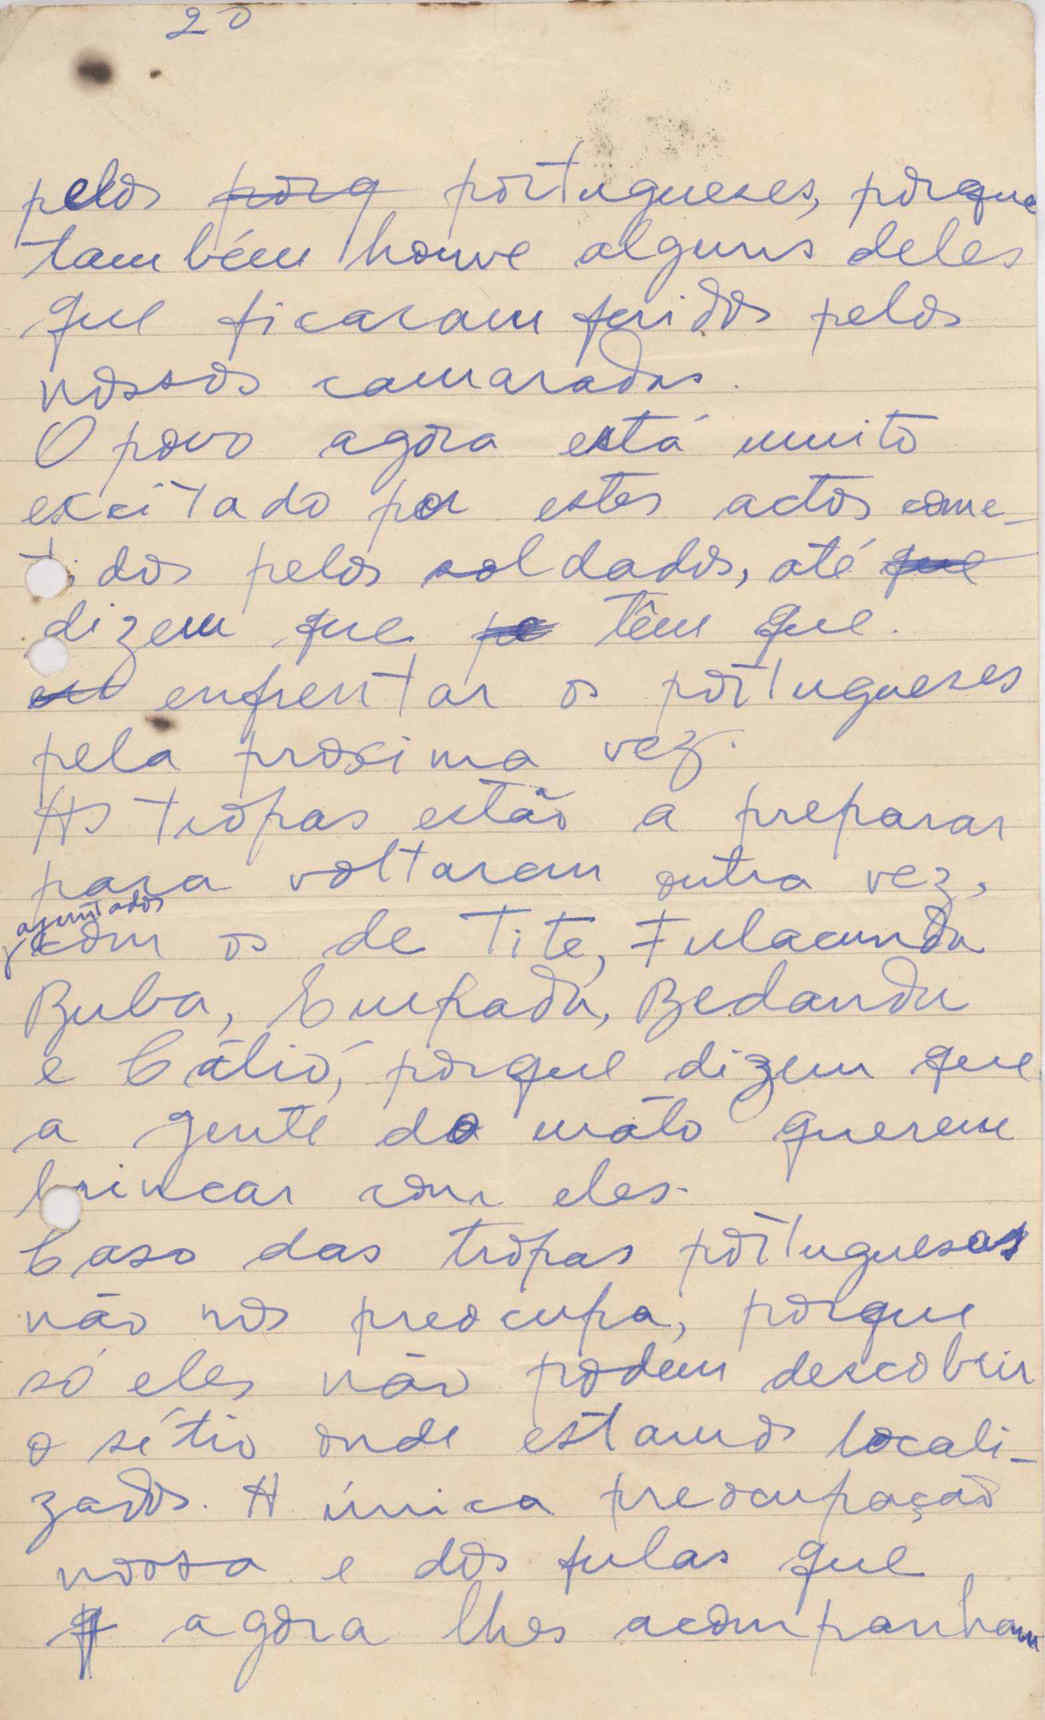 20
pelos porq portugueses, porque
também houve alguns deles
que ficaram feridos pelos
nossos camaradas.
O povo agora está muito
excitado por estes actos come-
tidos pelos soldados, até que
dizem que pe têm que.
enfrentar os portugueses
pela proxima vez.
As tropas estão a preparar
para voltarem outra vez,
ajuntados
com os de Tite, Fulacunda
Buba, Empada, Bedanda
e Cátió, porque dizem que
a gente do mato querem
brincar com eles.
Caso das tropas portuguesas
não nos preocupa, porque
só eles não podem descobrir
o sítio onde estamos locali-
zados. A única preocupação
nossa e dos fulas que
agora lhes acompanham